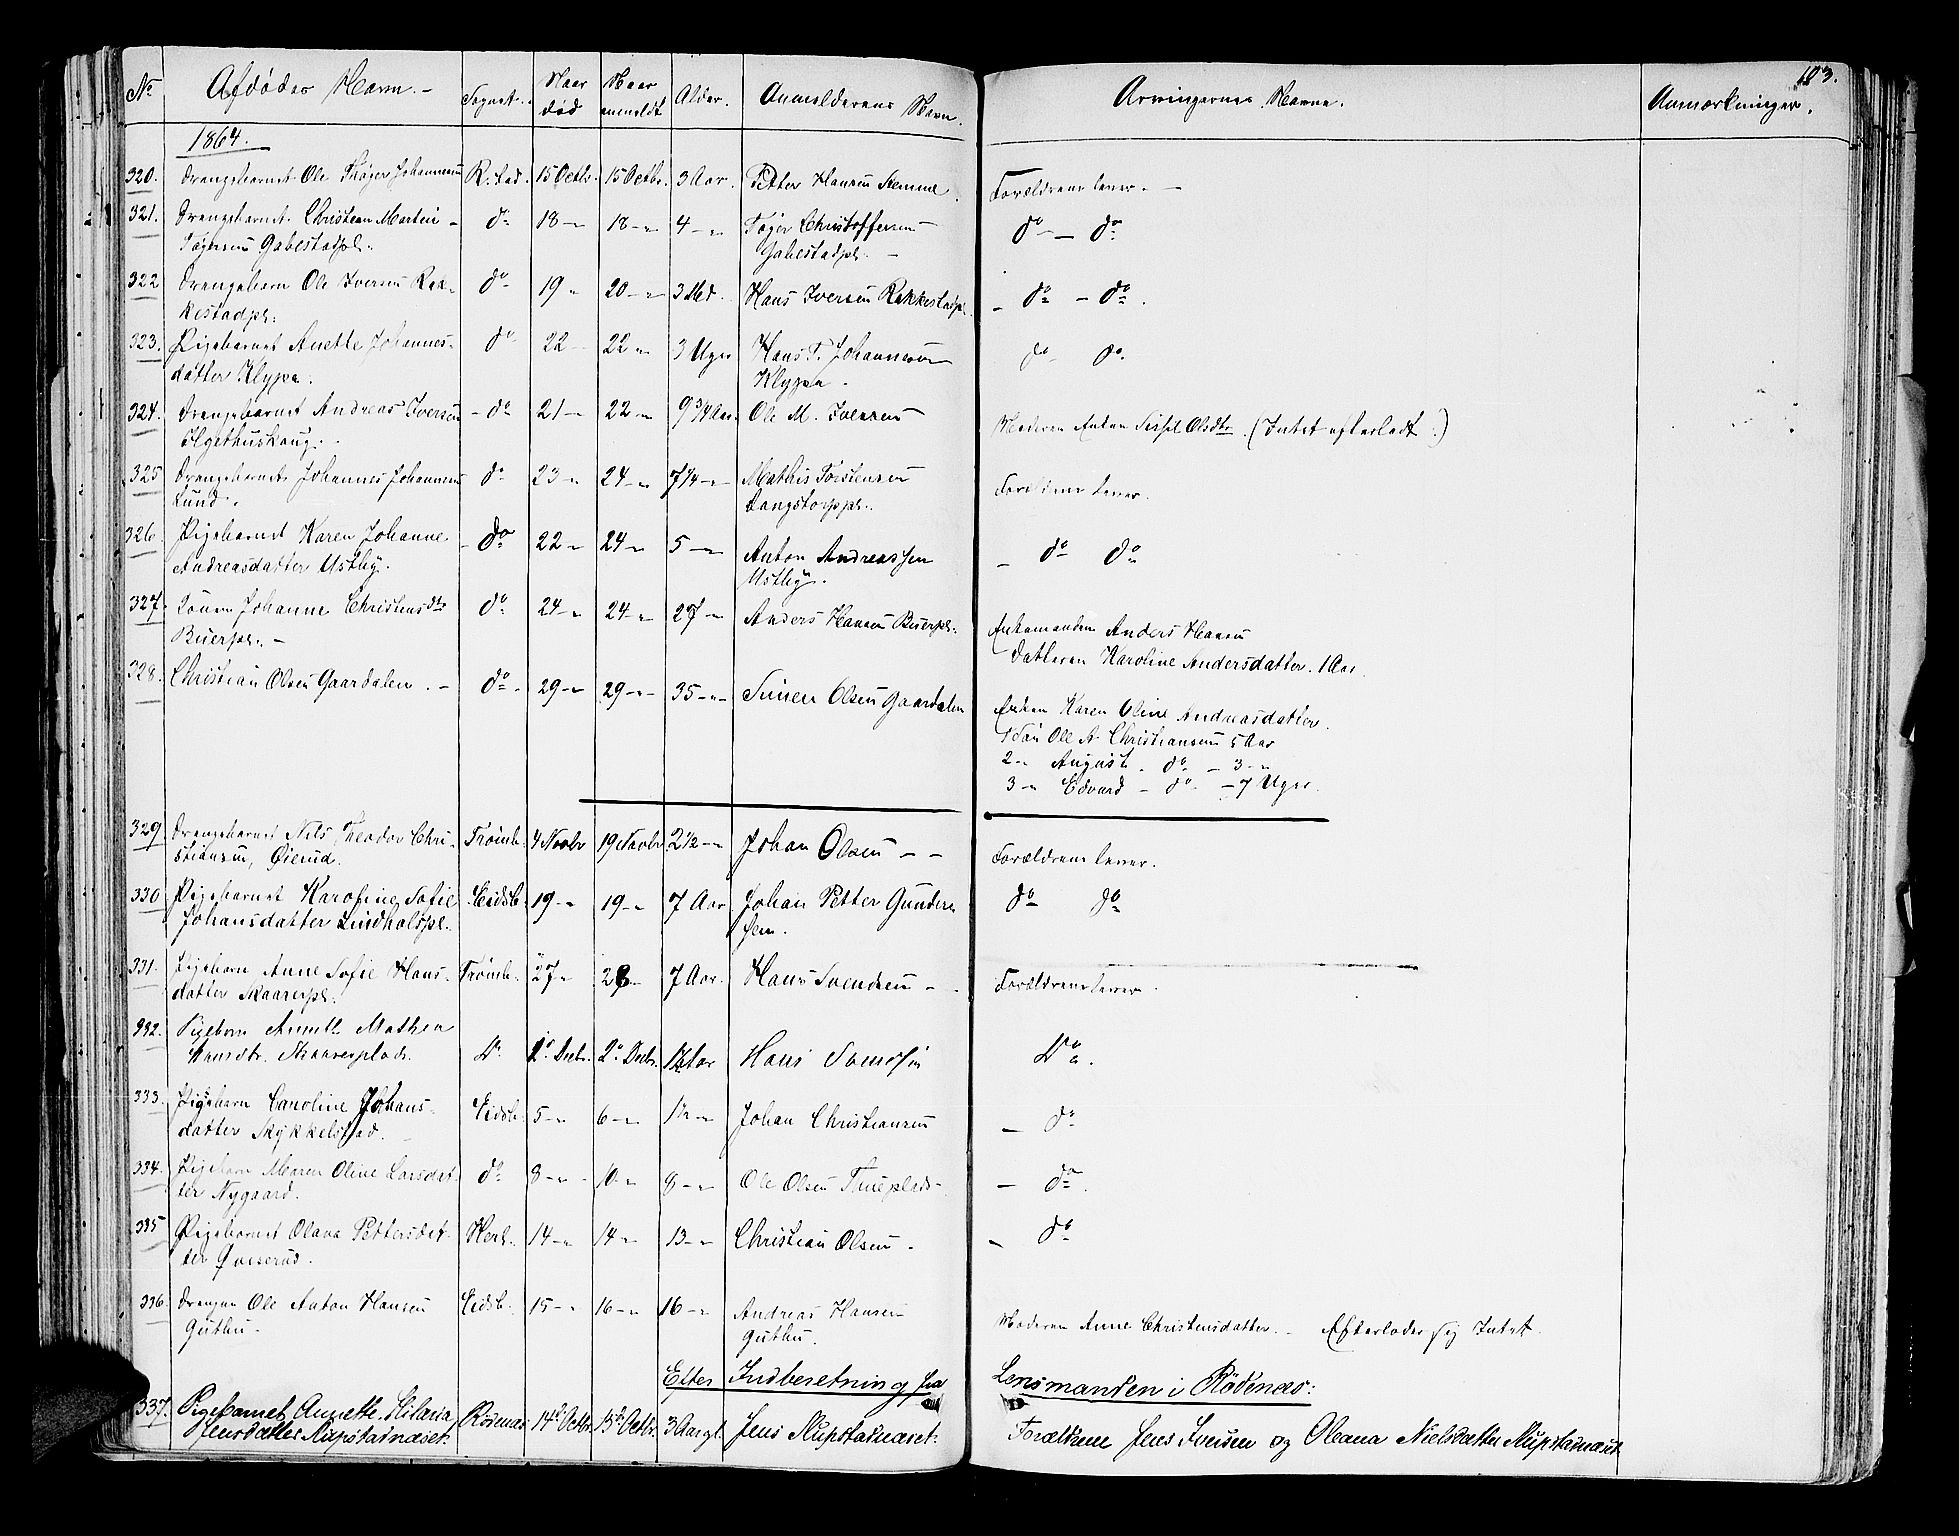 103.
No Afdødes Navn. Sognet. Naar død Naar anmeldt Alder. Anmelderens Navn. Arvingernes Navne. Anmærkninger.
1864.
320. Drengebarnet Ole Thøger Johannesen R.stad. 15 Octbr. 15 Octbr. 3 Aar. Petter Hansen Forældrene lever.
321. Drengebarnet Christian Martin do 18 - 18 - 4 - Tøger Christoffersen do - do
Tøgersen Gabestadpl. Gabestadpl.
322 Drengebarn Ole Iversen Rak- do 19 " 20 - 3 Md. Hans Iversen Rakkestadpl. do - do.
kestadpl.
323. Pigebarnet Anette Johannes- do 22 22 " 3 Uger Hans T. Johannesen do do.
datter Klypen. Klypen.
324. Drengebarnet Andreas Iversen - do 21 - 22 - 9 3/4 Aar. Ole M. Iversen Moderen Enken Sissel Olsdtr. (Intet efterladt.)
Elgethuskaug.
325 Drengebarnet Johannes Johannesen do 23 - 24 - 7 1/4 - Mathis Torstensen Forældrene lever.
Lund. Langstorppl.
326. Pigebarnet Karen Johanne do 22 - 24 - 5 - Anton Andreassen do do
Andreasdatter Ustby. Ustby.
327. Konen Johanne Christensdtr do 24 - 24 - 27 - Anders Hansen Buerpl. Enkemanden Anders Hansen
Buerpl. - Datteren Karoline Andersdatter. 1 Aar.
328. Christian Olsen Gaardalen. - do - 29 - 29 - 35 - Simen Olsen Gaardalen Enken Karen Oline Andreasdatter.
1 Søn Ole A. Christiansen 5 Aar
2 " August - do - 3 "
3 " Edvard - do - 7 Uger.
329 Drengebarnet Nils Theodor Chri- Trømb. 4 Novbr 19 Novbr. 2 1/2 - Johan Olsen - - Forældrene lever.
stiansen, Øierud.
330 Pigebarnet Karoline Sofie Eidsb. 19 - 19 - 7 Aar Johan Petter Gunder- do do
Johansdatter Lindholspl. sen.
331. Pigebarn Anne Sofie Hans- Trømb. 27 " 28 - 7 Aar. Hans Svendsen - - Forældrene lever.
datter Skaarerpl.
332. Pigebarn Anette Mathea Do 1o Decbr. 2o Decbr. Aar Hans Svendsen Do.
Hansdtr. Skaarerplads.
333. Pigebarn Caroline Johans- Eidsb. 5 - 6 - 1 1/2 - Johan Christiansen - do
datter Mykkelstad.
334. Pigebarn Maren Oline Larsdat- do 8 - 10 - 8 - Ole Olsen Tueplads - - do.
ter Nygaard.
335 Pigebarnet Olava Pettersdat- Herl. 14 - 14 - 13 - Christian Olsen - - do
ter Qviserud.
336. Drengen Ole Anton Hansen Eidsb. 15 - 16 - 16 - Andreas Hansen Moderen Anne Christensdatter. Efterlader sig Intet.
Guthu - Guthu.
Efter Indberetning fra Lensmanden i Rødenæs:
337. Pigebarnet Annette Hilaria Rødenæs 14de Octbr. 15de Octbr. 3 Aar gl. Jens Kupstadnæset. Forældrene Jens Iversen og Oleana Nielsdatter Kupstadnæset
Jensdatter Kupstadnæset.